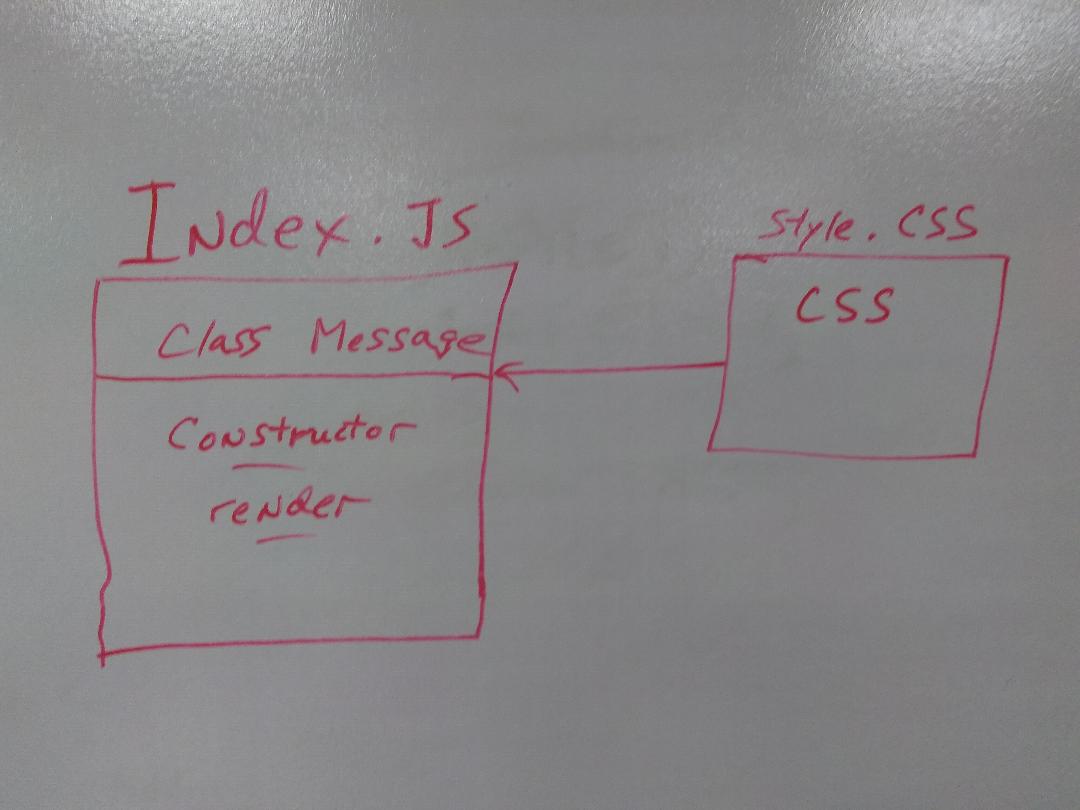 Index.JS
Class Message
Constructor
render
Style.CSS
CSS